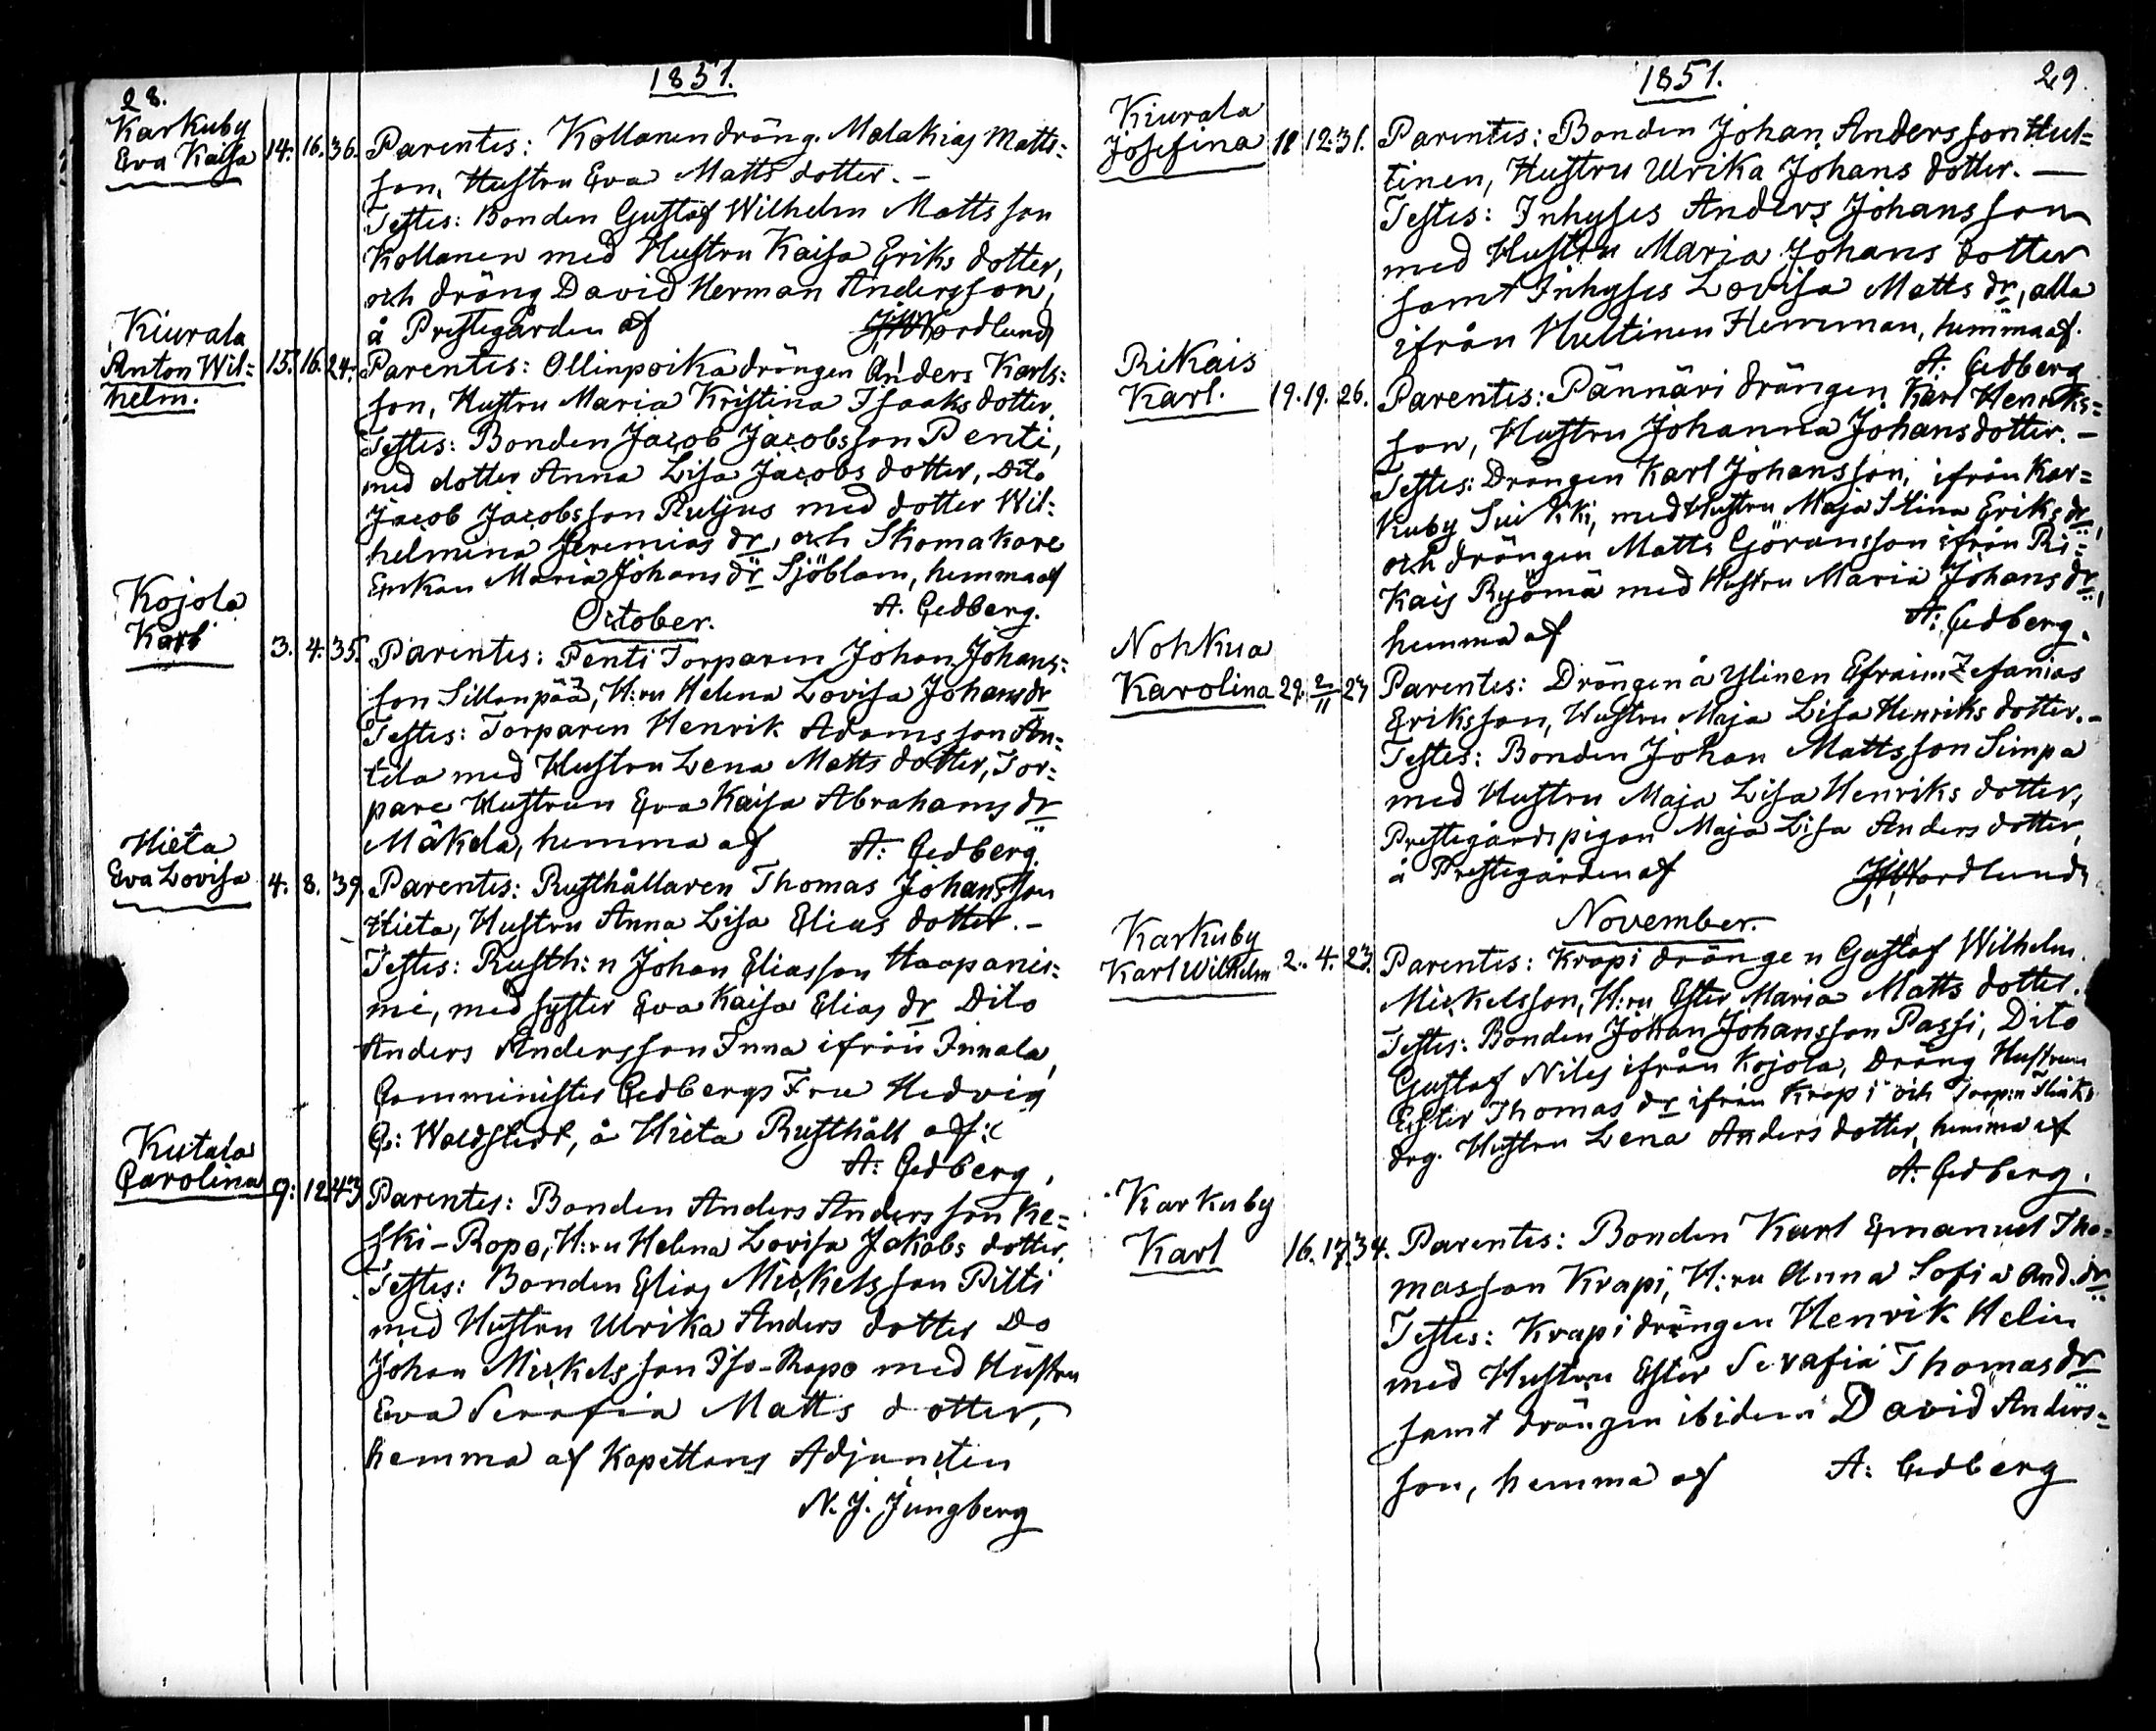 28.
1851.
Karkuby
Eva Kaisa 14. 16. 36. Parentes: Kollanen dräng. Malakias Matts=
son, Hustru Eva Matts dotter. -
Testes: Bonden Gustaf Wilhelm Mattsson
Kollanen med Hustru Kaisa Eriks dotter,
och dräng David Herman Andersson,
å Prestegården af JHNordlund
Kiurala
Anton Wil= 15. 16. 24. Parentes: Ollinpoika drängen Anders Karls=
helm. son, Hustru Maria Kristina Isaaks dotter.
Testes: Bonden Jacob Jacobsson Penti,
med dotter Anna Lisa Jacobs dotter, Dito
Jacob Jacobsson Ruljus med dotter Wil=
helmina Jeremias dr, och Skomakare
Enkan Maria Johans dr Sjöblom, hemma af
A. Cedberg.
October.
Kojola
Karl 3. 4. 35. Parentes: Penti Torparen Johan Johans=
son Sillanpää, H:ru Helena Lovisa Johans dr
Testes: Torparen Henrik Adamsson An=
tila med Hustru Lena Matts dotter, Tor=
pare Hustrun Eva Kaisa Abrahams dr
Mäkelä, hemma af A: Cedberg.
Hieta
Eva Lovisa 4. 8. 39. Parentes: Rusthållaren Thomas Johansson
Hieta, Hustru Anna Lisa Elias dotter. -
Testes: Rusth:n Johan Eliasson Haapanie=
mi, med syster Eva Kaisa Elias dr Dito
Anders Andersson Inna ifrån Innala,
Comminister Cedbergs Fru Hedvig
C: Waldstedt, å Hieta Rusthåll af:
A: Cedberg,
Kutala
Carolina 9: 12. 43. Parentes: Bonden Anders Andersson Ke=
ski-Ropo, H:ru Helena Lovisa Jakobs dotter.
Testes: Bonden Elias Mickelsson Pitti
med Hustru Ulrika Anders dotter Do
Johan Mickelsson Iso-Ropo med Hustru
Eva Serafia Matts dotter,
hemma af Kapellans Adjuncten
N. J. Jungberg
1851.
29.
Kiurala
Josefina 11 12. 31. Parentes: Bonden Johan Andersson Hul=
tinen, Hustru Ulrika Johans dotter. -
Testes: Inhyses Anders Johansson
med Hustru Maria Johans dotter
samt Inhyses Lovisa Matts dr, alla
ifrån Hultinen Hemman, hemma af.
A: Cedberg
Rikais
Karl. 19. 19. 26. Parentes: Pännäri drängen Karl Henriks=
son, Hustru Johanna Johansdotter. -
Testes: Drängen Karl Johansson, ifrån Kar=
kuby Suikki, med Hustru Maja Stina Eriks dr,
och drängen Matts Göransson ifrån Ri=
kais Ryömä med Hustru Maria Johans dr,
hemma af A: Cedberg.
Nohkua
Karolina 29. 2/11 27 Parentes: Drängen å Ylinen Efraim Zefanias
Eriksson, Hustru Maja Lisa Henriks dotter. -
Testes: Bonden Johan Mattsson Simpa
med Hustru Maja Lisa Henriks dotter,
Prestegårdspigan Maja Lisa Anders dotter,
å Prestegården af JHNordlund
November.
Karkuby
Karl Wilhelm 2. 4. 23. Parentes: Krapi drängen Gustaf Wilhelm
Mickelsson, H:ru Ester Maria Matts dotter.
Testes: Bonden Johan Johansson Passi, Dito
Gustaf Niles ifrån Kojola, dräng Hustrun
Ester Thomas dr ifrån Krapi och Torp:n
drg. Hustru Lena Anders dotter, hemma af
A. Cedberg.
Karkuby
Karl 16. 17. 34. Parentes: Bonden Karl Emanuel Tho=
masson Krapi, H:ru Anna Sofia And. dr
Testes: Krapi drängen Henrik Helin
med Hustru Ester Serafia Thomas dr
samt drängen ibidem David Anders=
son, hemma af A: Cedberg